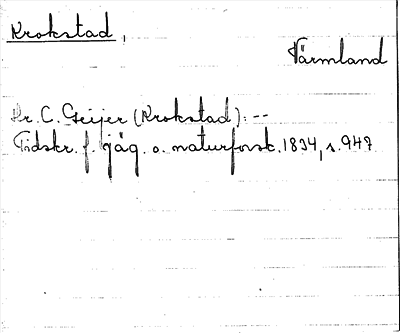 Krokstad,
Värmland
Hr. C. Geijer (Krokstad): --
Tidskr. f. jäg. o. naturforsk. 1834, s. 947